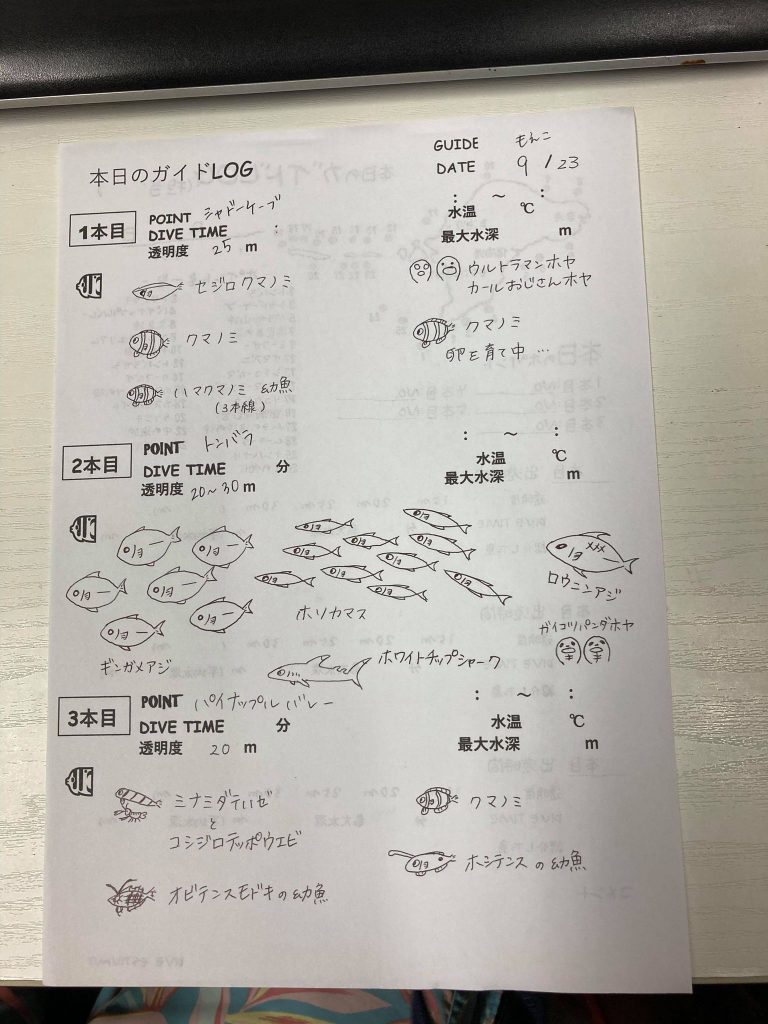 本日のガイドLOG
GUIDE もえこ
DATE 9/23
1本目
POINT シャドーケーブ
DIVE TIME :
透明度 25 m
: ~ :
水温 ℃
最大水深 m
セジロクマノミ
ウルトラマンホヤ
カールおじさんホヤ
クマノミ
クマノミ
卵を育て中…
ハマクマノミ 幼魚
(3本線)
2本目
POINT トンバラ
DIVE TIME 分
透明度 20~30 m
: ~ :
水温 ℃
最大水深 m
ギンガメアジ
ホソカマス
ロウニンアジ
ホワイトチップシャーク
ガイコツパンダホヤ
3本目
POINT パイナップルバレー
DIVE TIME 分
透明度 20 m
: ~ :
水温 ℃
最大水深 m
ミナミダテハゼ
と
コシジロテッポウエビ
クマノミ
オビテンスモドキの幼魚
ホシテンスの幼魚